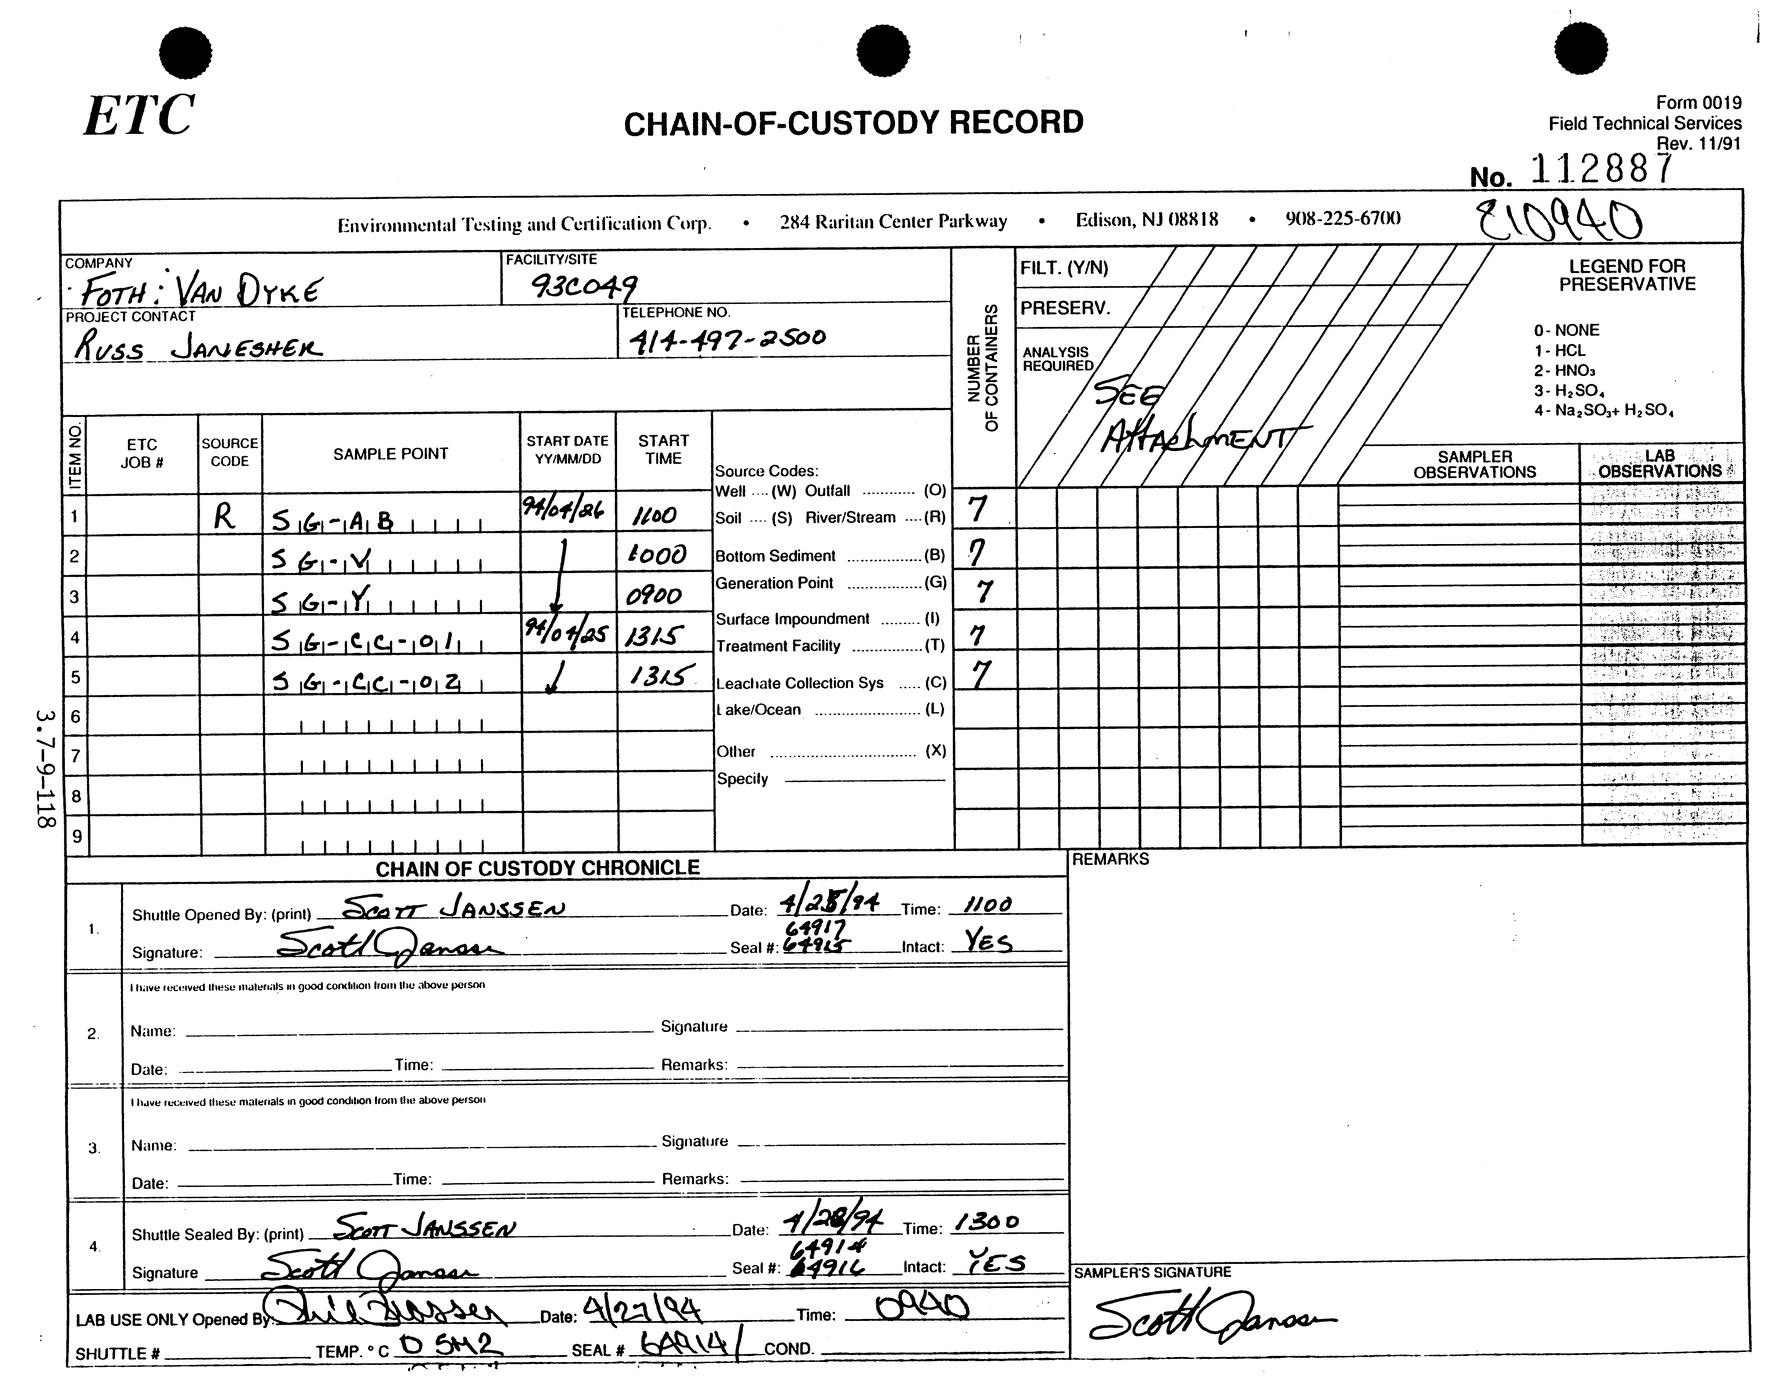 ETC
CHAIN-OF-CUSTODY RECORD
Form 0019
Field Technical Services
Rev. 11/91
No. 112887
Environmental Testing and Certification Corp. • 284 Raritan Center Parkway • Edison, NJ 08818 • 908-225-6700
E10940
COMPANY
FOTH : VAN DYKE
FACILITY/SITE
93C049
PROJECT CONTACT
RUSS JANESHER
TELEPHONE NO.
414-497-2500
NUMBER OF CONTAINERS
FILT. (Y/N)
PRESERV.
ANALYSIS REQUIRED
SEE
AttAchMENT
LEGEND FOR
PRESERVATIVE
0 - NONE
1 - HCL
2 - HNO₃
3 - H₂SO₄
4 - Na₂SO₃+ H₂SO₄
ITEM NO. ETC JOB # SOURCE CODE SAMPLE POINT START DATE YY/MM/DD START TIME SAMPLER OBSERVATIONS LAB OBSERVATIONS
1 R SG-AB 94/04/26 1100 7
2 SG-V 1000 7
3 SG-Y 0900 7
4 SG-CC-01 94/04/25 1315 7
5 SG-CC-02 1315 7
6
7
8
9
Source Codes:
Well .... (W) Outfall ............ (O)
Soil .... (S) River/Stream .... (R)
Bottom Sediment ............... (B)
Generation Point ............... (G)
Surface Impoundment ......... (I)
Treatment Facility ............... (T)
Leachate Collection Sys ..... (C)
Lake/Ocean ....................... (L)
Other ................................ (X)
Specify
3.7-9-118
CHAIN OF CUSTODY CHRONICLE
REMARKS
1. Shuttle Opened By: (print) SCOTT JANSSEN Date: 4/25/94 Time: 1100
64917
Signature: Scott Janssen Seal #: 64915 Intact: YES
I have received these materials in good condition from the above person
2. Name: Signature
Date: Time: Remarks:
I have received these materials in good condition from the above person
3. Name: Signature
Date: Time: Remarks:
4. Shuttle Sealed By: (print) SCOTT JANSSEN Date: Time: 1300
64914
Signature Scott Janssen Seal #: 64916 Intact: YES
SAMPLER'S SIGNATURE
Scott Janssen
LAB USE ONLY Opened By: Date: 4/27/94 Time: 0940
SHUTTLE # TEMP. °C SEAL # 64914/ COND.